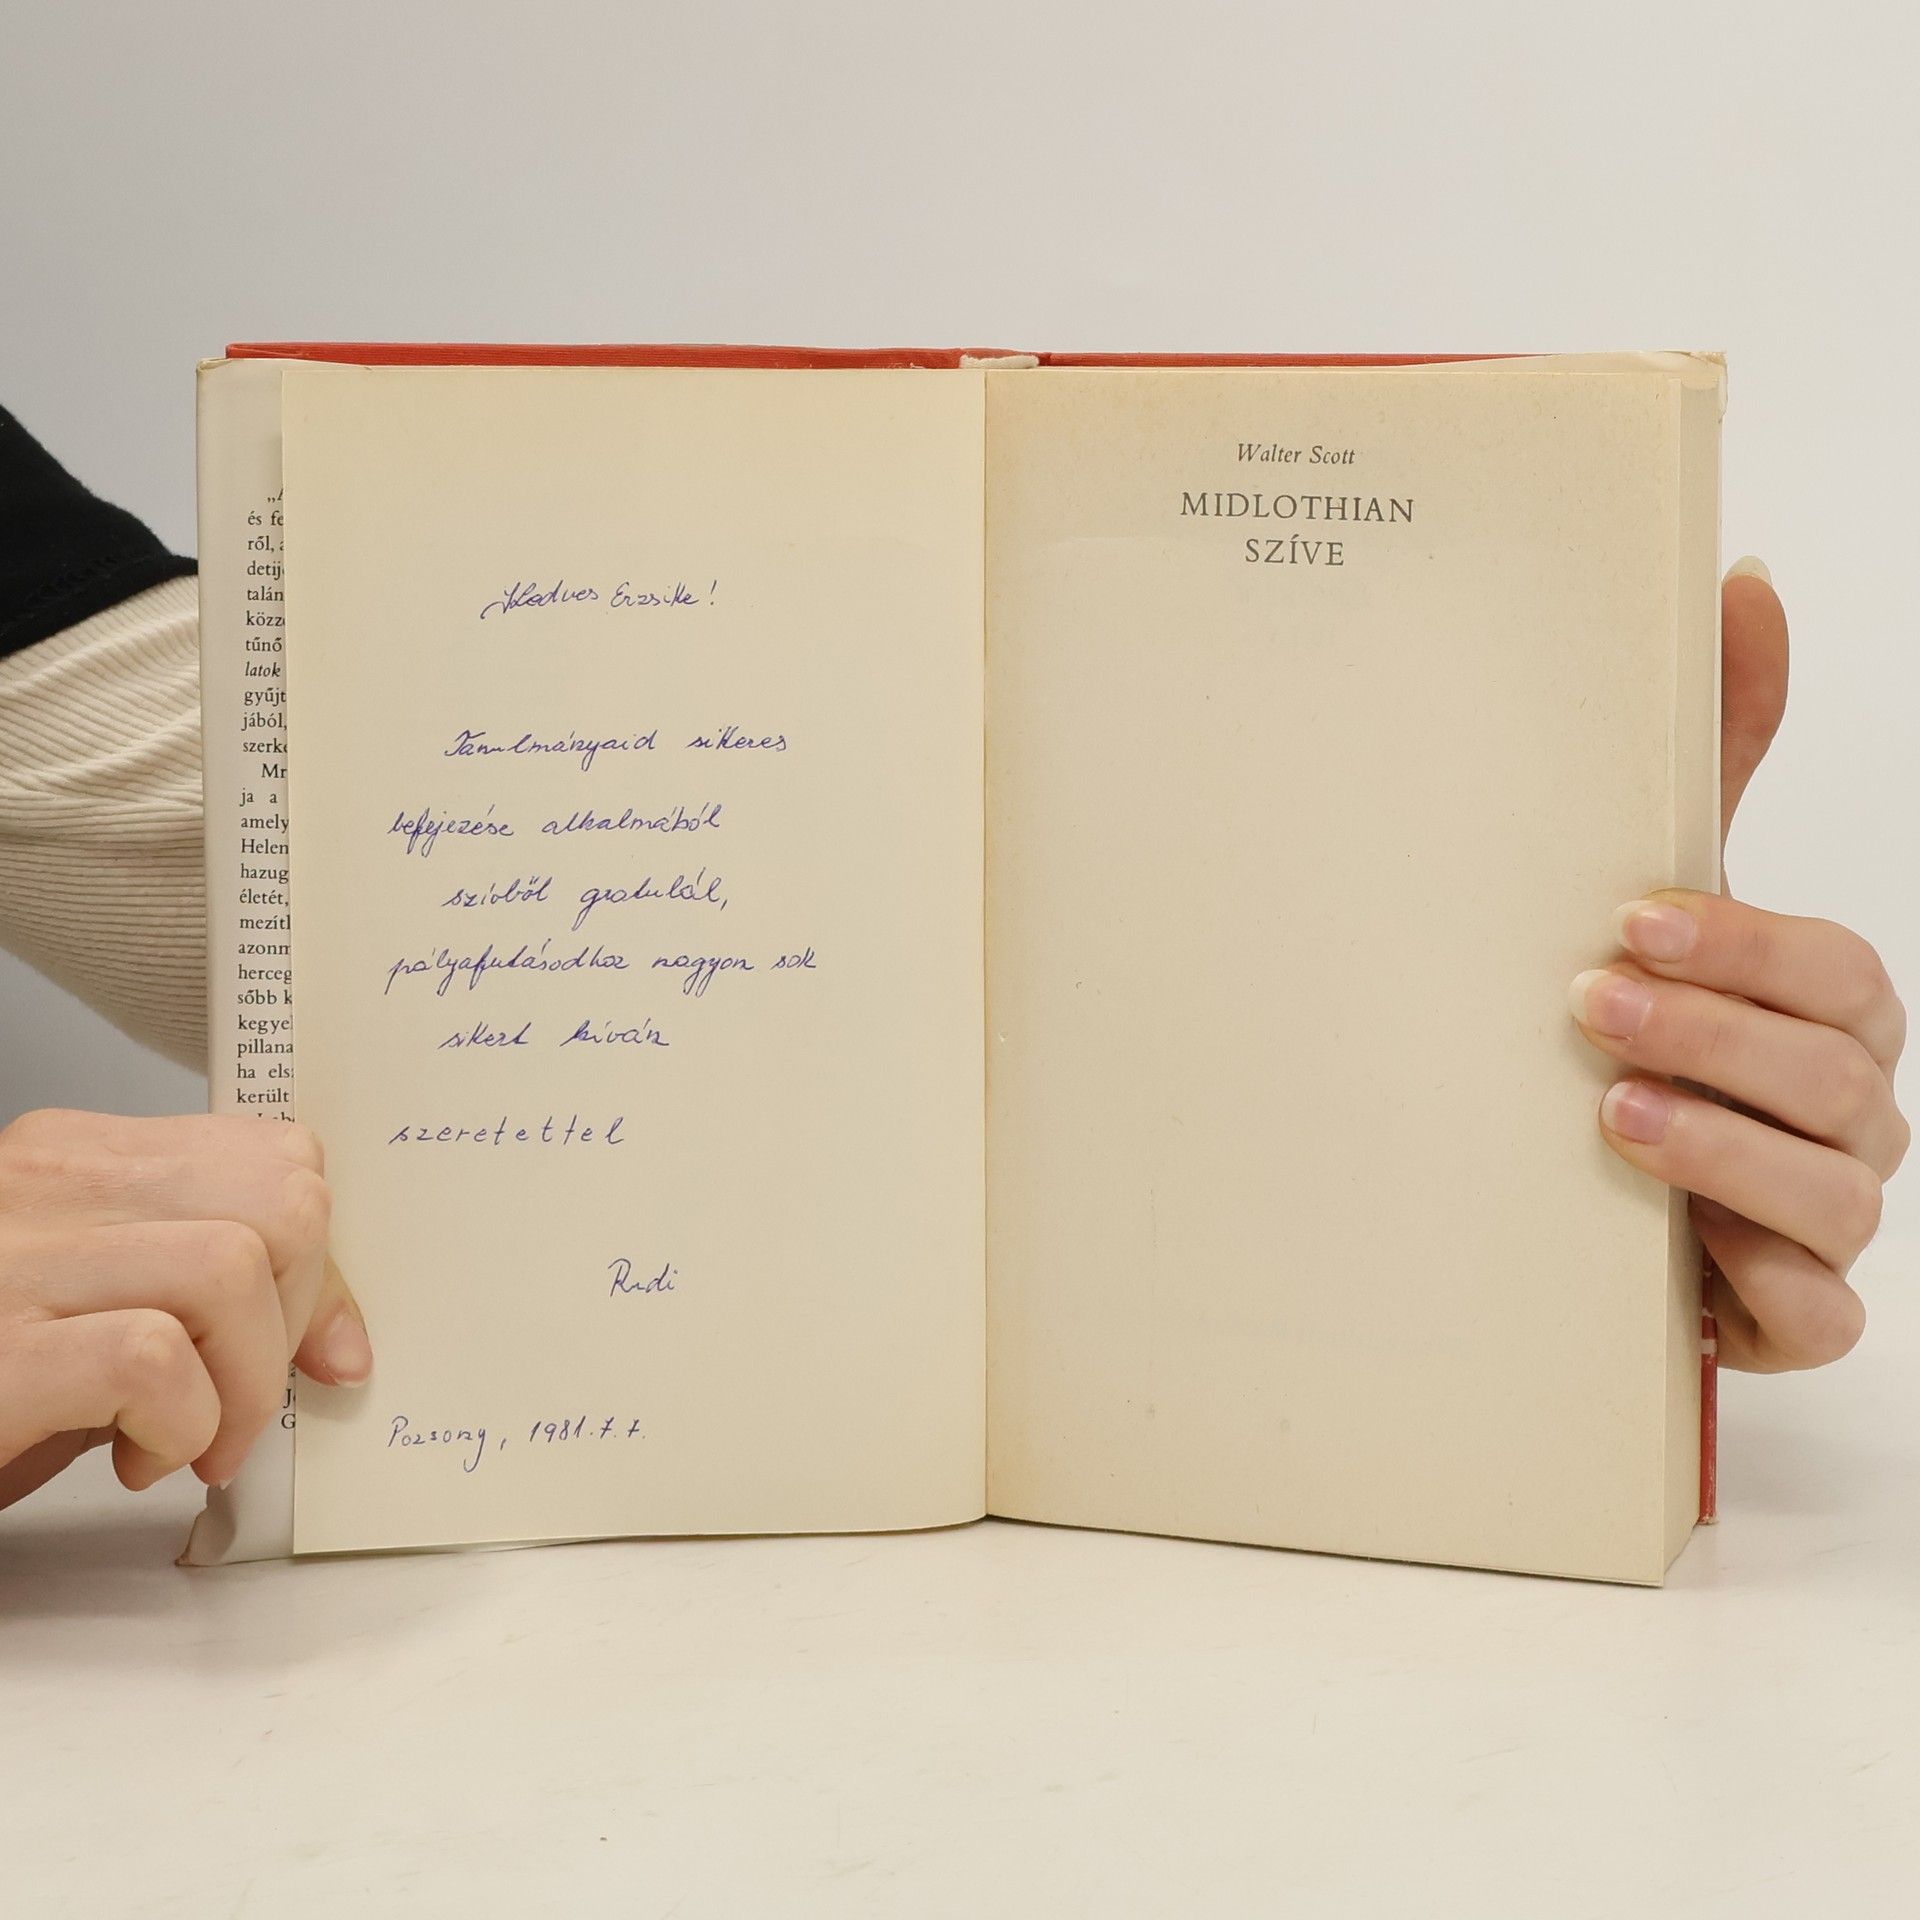 „A
és fe
ről, a
detij
talán
közze
tűnő
latok
gyűjt
jából,
szerke
Mr
ja a
amely
Helen
hazug
életét,
mezítl
azonm
herceg
sőbb k
kegyel
pillana
ha els
került
J
G
Kedves Erzsike!
Tanulmányaid sikeres
befejezése alkalmából
szívből gratulál,
pályafutásodhoz nagyon sok
sikert kíván
szeretettel
Rudi
Pozsony, 1981.7.7.
Walter Scott
MIDLOTHIAN
SZÍVE